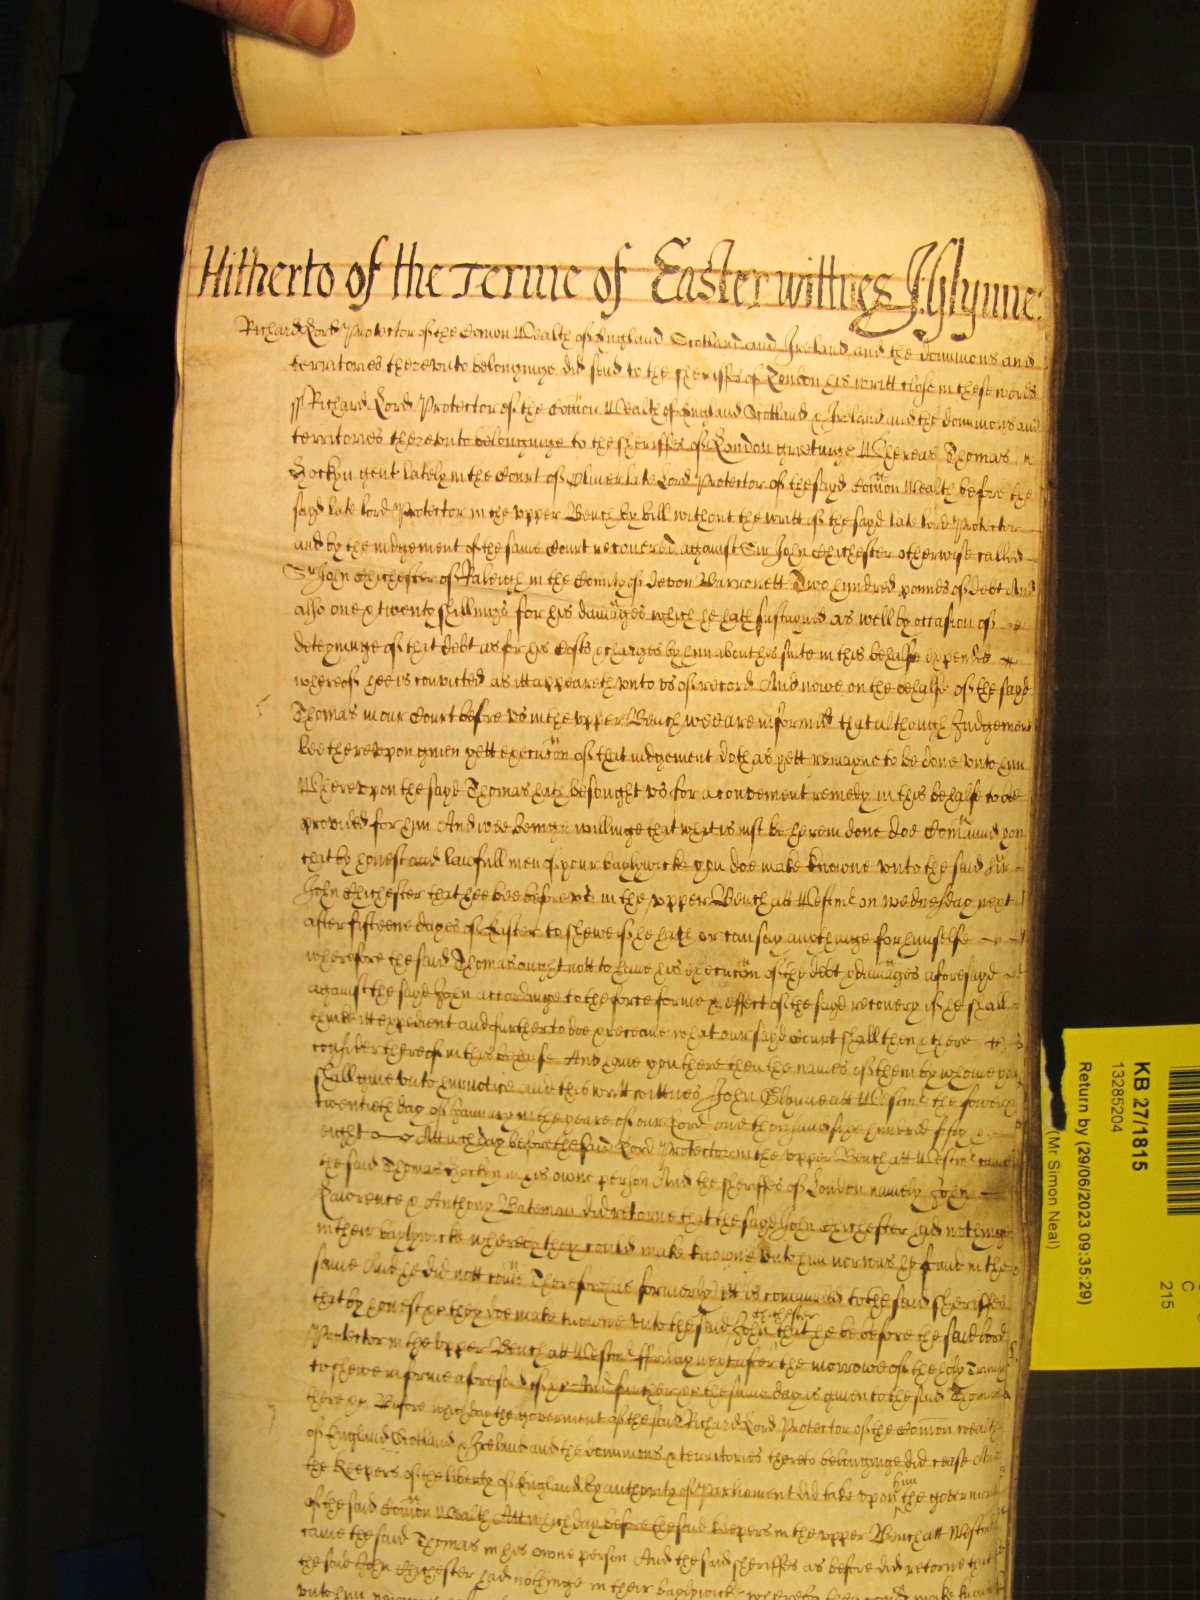 Hitherto of the Terme of Easter wittnes J. Glynne:
Richard Lord Protector of the Comon Wealth of England Scotland and Ireland and the dominions and
territories thereunto belonginge did send to the sheriffes of London his writt close in these words
ss Richard Lord Protector of the Comon Wealth of England Scotland & Ireland and the dominions and
territories thereunto belonginge to the sheriffes of London greetinge Whereas Thomas
Hockyn gent lately in the Court of Oliver late Lord Protector of the sayd Comon Wealth before the
sayd late lord Protector in the upper Bench by bill without the writt of the sayd late lord Protector
and by the iudgement of the same Court recovered against Sir John Chichester otherwise called
Sr John Chichester of Raleigh in the County of Devon Barronett Two hundred pounds of debt And
also one & twenty shillings for his damages which he hath sustayned as well by occasion of
deteyninge of that debt as for his Costs & charges by him about his suite in this behalfe expended
whereof hee is convicted as itt appeareth unto us of record And nowe on the behalfe of the sayd
Thomas in our Court before us in the upper Bench wee are informed that although Iudgement
bee thereupon given yett execucon of that iudgement doth as yett remayne to be done unto him
Whereupon the sayd Thomas hath besought us for a convenient remedy in this behalfe to be
provided for him And wee beinge willinge that what is iust be herein done doe Comaund you
that by honest and lawfull men of your baylywicke you doe make knowne unto the said Sir
John Chichester that hee bee before us in the upper Bench att Westmr on wednesday next
after fifteene dayes of Easter to shewe if he hath or can say any thinge for himselfe
wherefore the said Thomas ought nott to have his execucon of the debt & damages aforesayd
against the sayd John accordinge to the force forme & effect of the sayd recovery if he shall
thinke itt expedient and further to doe & receave what our sayd Court shall then & there
consider thereof in this behalfe And have you there then the names of them by whome you
shall give unto him notice and this writt wittnes John Glynne att Westmr the
twentieth day of January in the yeare of our Lord one thousand six hundred fifty
eight Att wch day before the said Lord Protector in the upper Bench att Westmr came
the said Thomas Hockyn in his owne person And the sheriffes of London namely John
Lawrence & Anthony Bateman did retorne that the sayd John Chichester had nothinge
in their baylywicke whereby they could make knowne unto him nor was he found in the
same And he did nott come Therefore as formerly itt is comanded to the said sheriffes
that by honest &c they doe make knowne unto the said John Chichester that he be before the said lord
Protector in the upper Bench att Westmr ffryday next after the morrowe of the holy Trinity
to shewe in forme aforesaid if &c And further &c the same day is given to the said Thomas
there &c Before which day the goverment of the said Richard Lord Protector of the Comon wealth
of England Scotland & Ireland and the dominions & territories thereto belonginge did cease And
the Keepers of the liberty of England by authority of Parliament did take upon them the goverment
of the said Comon Wealth Att which day before the said keepers in the upper Bench att Westmr
came the said Thomas in his owne person And the said sheriffes as before did retorne that
the said John Chichester had nothinge in their baylywicke whereby they could make knowne
unto him
KB 27/1815
13285204
Return by (29/06/2023 09:35:29)
(Mr Simon Neal)
C
215